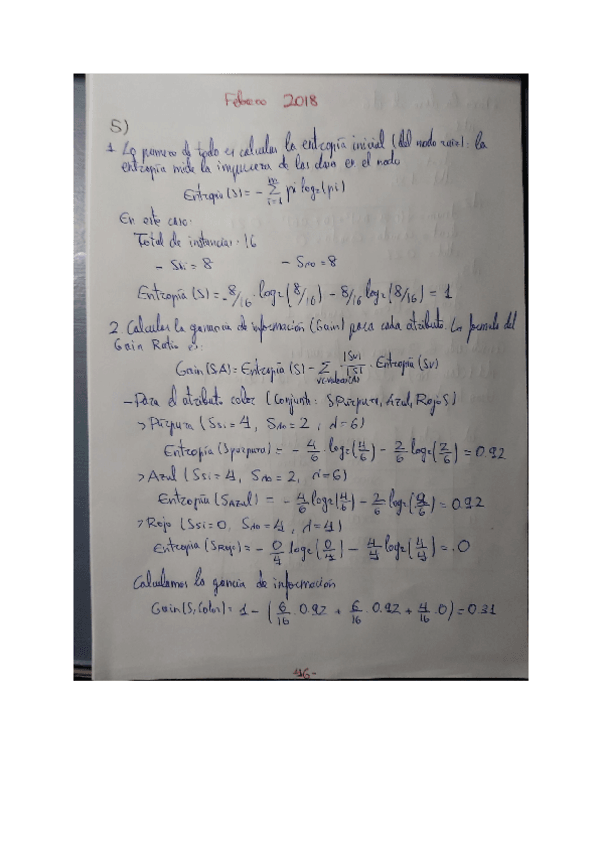 Febrero 2018
5)
1 Lo primero de todo es calcular la entropía inicial (del nodo raiz): la
entropía mide la impureza de los datos en el nodo
Entropía (S) = - Σ i=1 m pi log2 (pi)
En este caso:
Total de instancias: 16
- Ssi = 8 - Sno = 8
Entropía (S) = - 8/16 · log2 (8/16) - 8/16 log2 (8/16) = 1
2 Calcular la ganancia de información (Gain) para cada atributo. La formula del
Gain Ratio es:
Gain (S,A) = Entropía (S) - Σ |Sv|/|S| · Entropía (Sv)
- Para el atributo color (Conjunto: {Púrpura, Azul, Rojo})
> Púrpura (Ssi = 4, Sno = 2, d = 6)
Entropía (Spúrpura) = - 4/6 · log2 (4/6) - 2/6 log2 (2/6) = 0.92
> Azul (Ssi = 4, Sno = 2, d = 6)
Entropía (SAzul) = - 4/6 log2 (4/6) - 2/6 log2 (2/6) = 0.92
> Rojo (Ssi = 0, Sno = 4, d = 4)
Entropía (SRojo) = - 0/4 log2 (0/4) - 4/4 log2 (4/4) = 0
Calculamos la gancia de información
Gain (S, Color) = 1 - (6/16 · 0.92 + 6/16 · 0.92 + 4/16 · 0) = 0.31
-46-